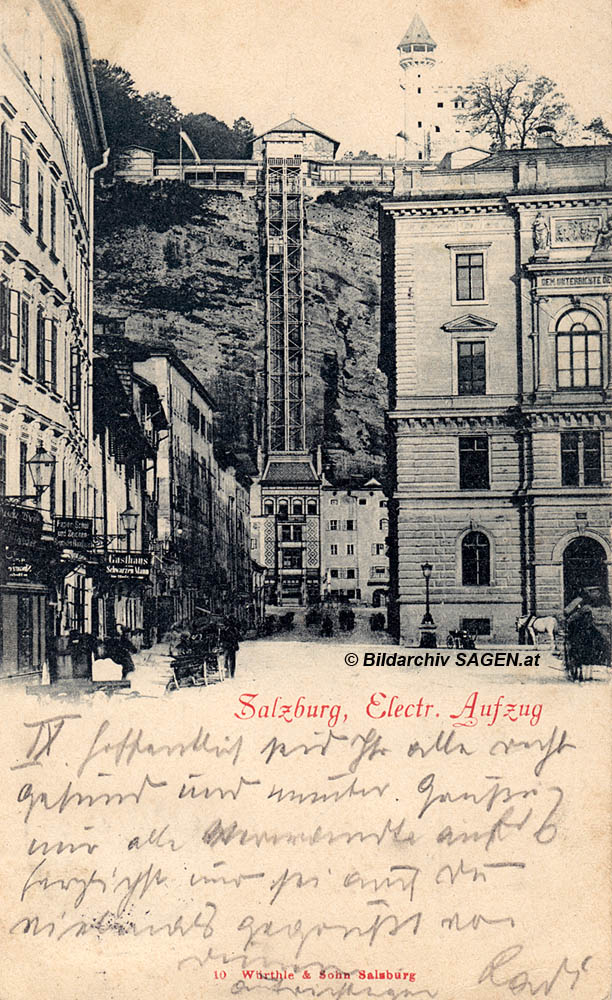 DEM UNTERRICHTE
Gasthaus
Schwarzen Mann
© Bildarchiv SAGEN.at
Salzburg, Electr. Aufzug
IV. Hoffentlich seid Ihr alle recht
gesund und munter
mir alle Verwandte auf's
herzlichste und sei auch du
vielmals gegrüßt von
10 Würthle & Sohn Salzburg